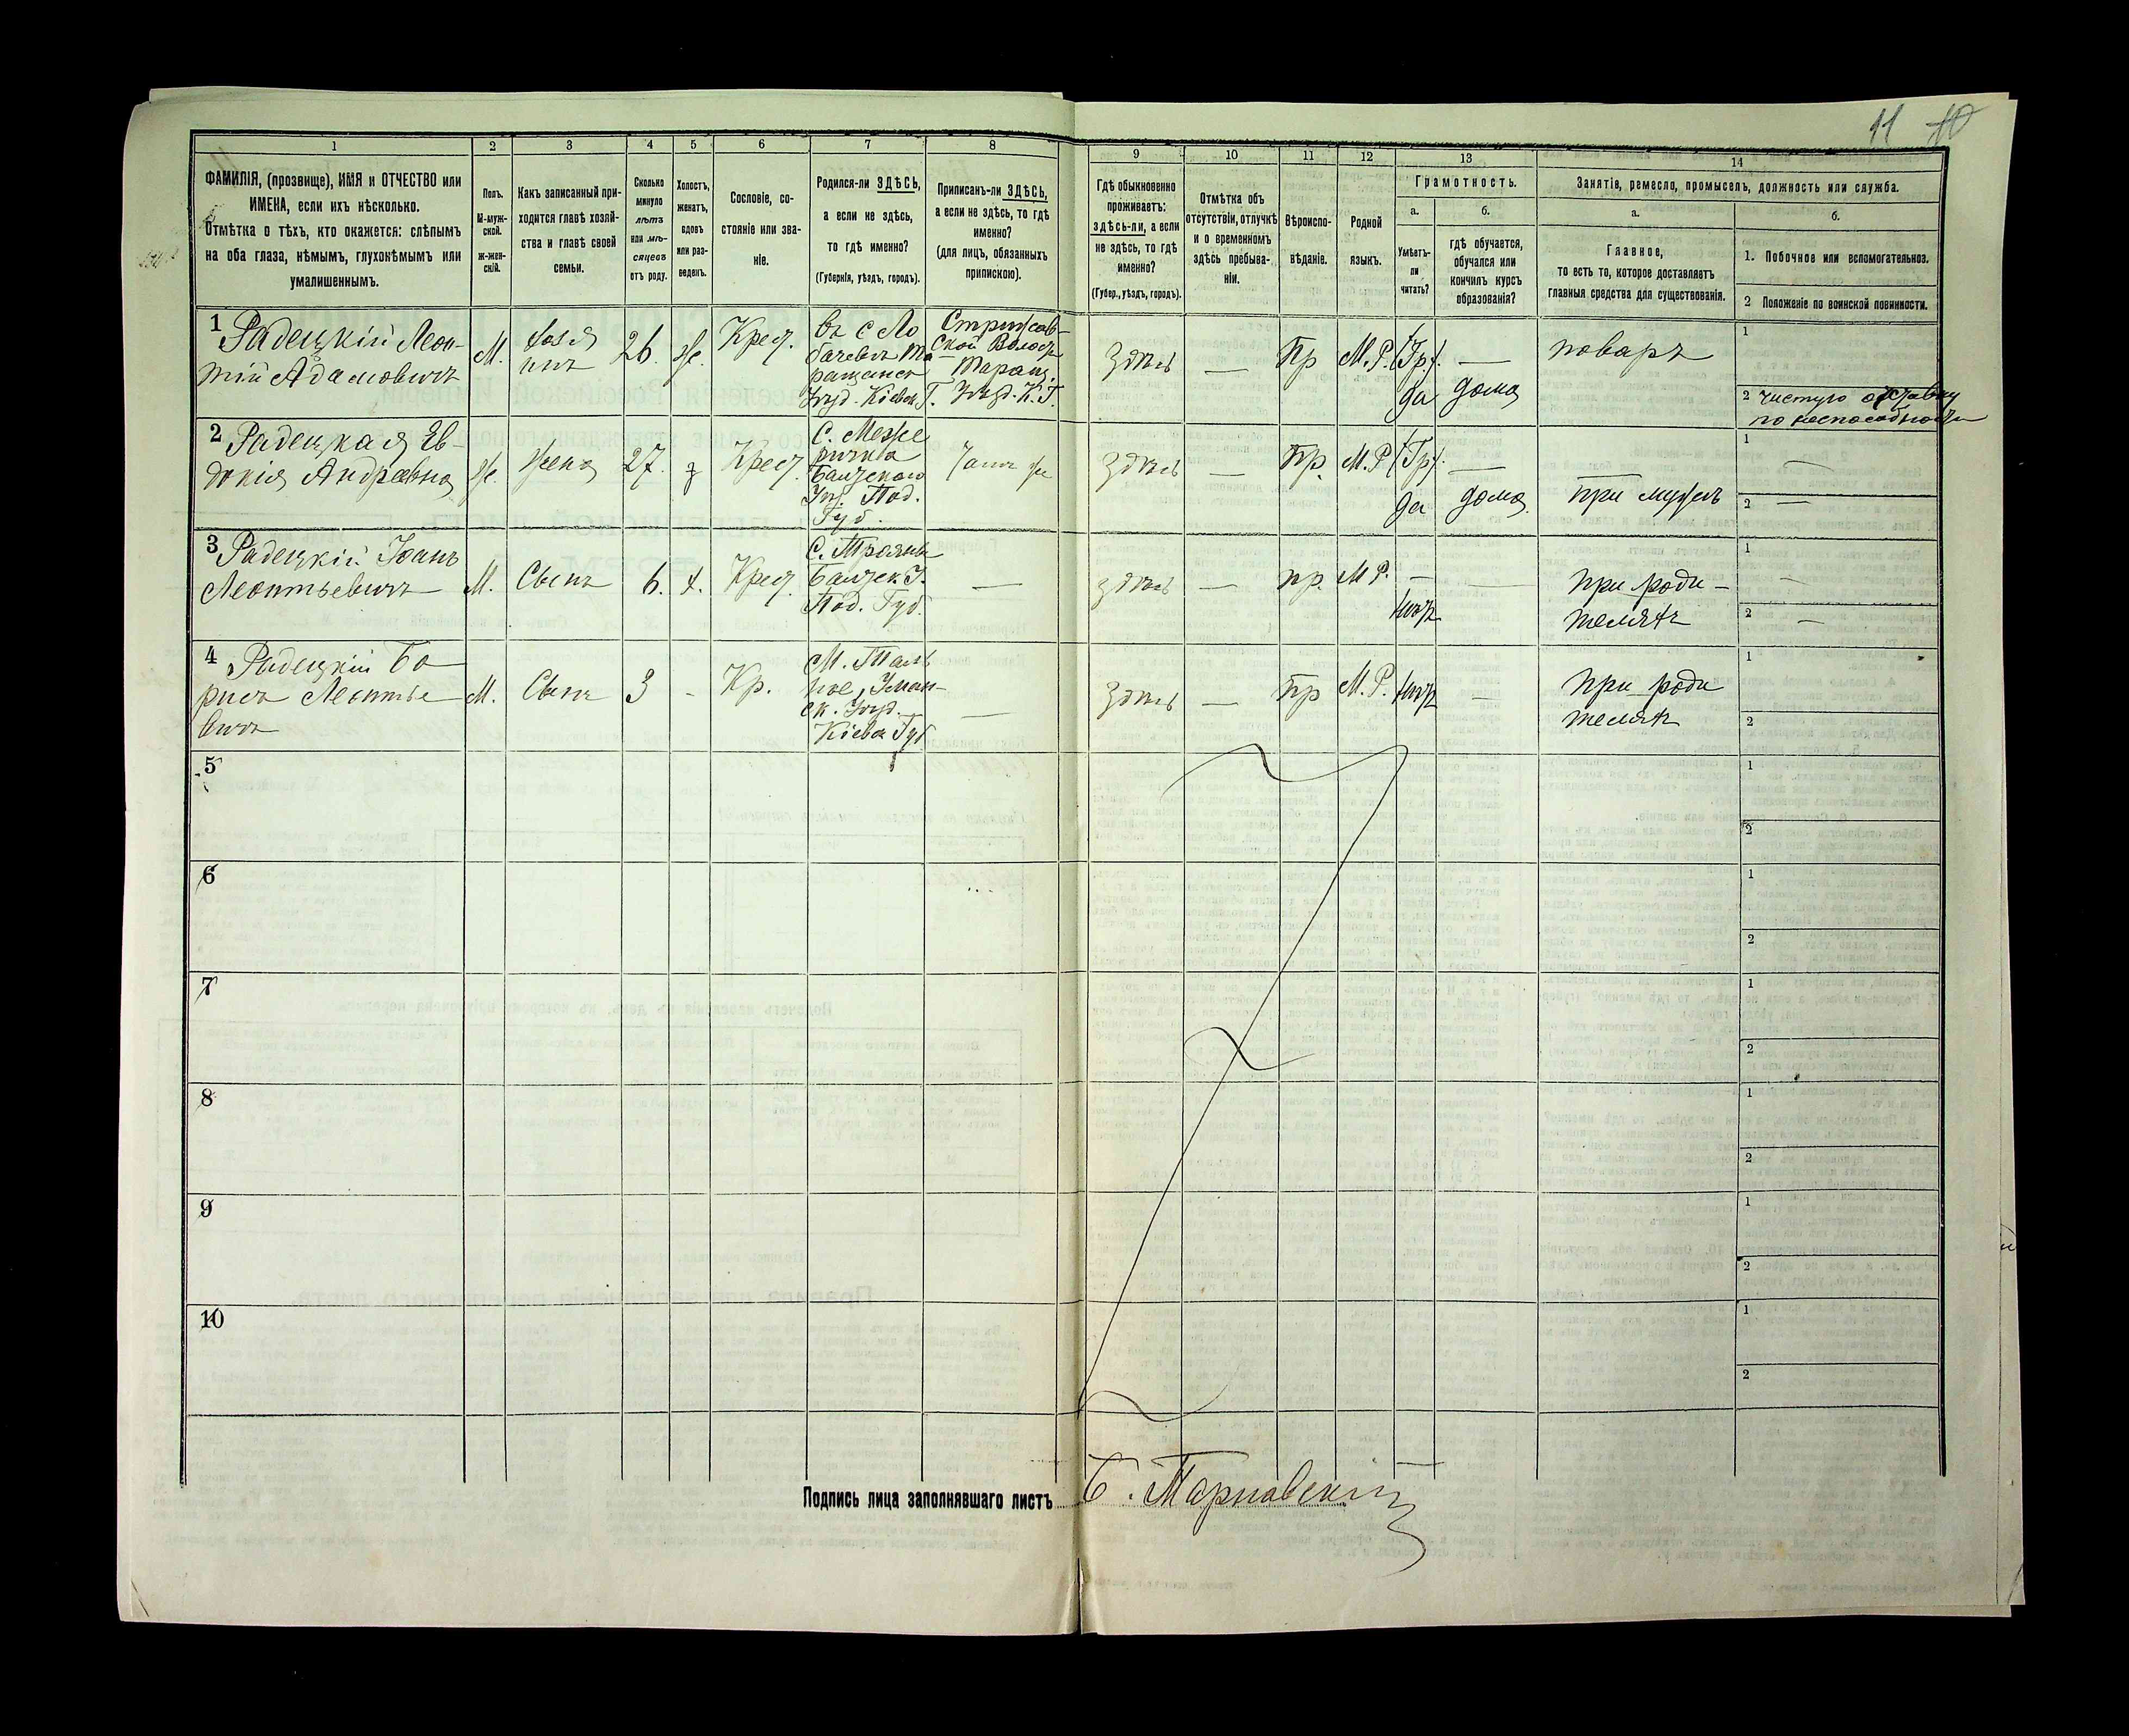 11 10
1 2 3 4 5 6 7 8
ФАМИЛІЯ, (прозвище), ИМЯ и ОТЧЕСТВО или
ИМЕНА, если ихъ нѣсколько.
Отмѣтка о тѣхъ, кто окажется: слѣпымъ
на оба глаза, нѣмымъ, глухонѣмымъ или
умалишеннымъ.
Полъ.
М-муж-
ской.
Ж-жен-
скій.
Какъ записанный при-
ходится главѣ хозяй-
ства и главѣ своей
семьи.
Сколько
минуло
лѣтъ
или мѣ-
сяцевъ
отъ роду.
Холостъ,
женатъ,
вдовъ
или раз-
веденъ.
Сословіе, со-
стояніе или зва-
ніе.
Родился-ли ЗДѢСЬ,
а если не здѣсь,
то гдѣ именно?
(Губернія, уѣздъ, городъ).
Приписанъ-ли ЗДѢСЬ,
а если не здѣсь, то гдѣ
именно?
(для лицъ, обязанныхъ
припискою).
9 10 11 12 13 14
Гдѣ обыкновенно
проживаетъ:
здѣсь-ли, а если
не здѣсь, то гдѣ
именно?
(Губер., уѣздъ, городъ).
Отмѣтка объ
отсутствіи, отлучкѣ
и о временномъ
здѣсь пребыва-
ніи.
Вѣроиспо-
вѣданіе.
Родной
языкъ.
Грамотность.
а. б.
Умѣетъ-
ли
читать?
гдѣ обучается,
обучался или
кончилъ курсъ
образованія?
Занятіе, ремесло, промыселъ, должность или служба.
а. б.
Главное,
то есть то, которое доставляетъ
главныя средства для существованія.
1. Побочное или вспомогательное.
2 Положеніе по воинской повинности.
1 Радецкій Леон-
тій Адамовичъ
М.
хозя
инъ
26.
ж.
Крест.
въ с Ло
бачевъ Та
ращанск
Уѣзд. Кіевск Г.
Стрижав-
ской Волости
Таращ.
Уѣзд. К. Г.
Здѣсь
—
Пр
М.Р.
(Гр).
да
—
дома
поваръ
1
2 чистую отставку
по неспособности
2 Радецкая Ев-
докія Андревна
ж.
жена
27.
з
Крест.
С.
Балтскаго
Уѣз. Под.
Губ.
Тамъ же
Здѣсь
—
Пр.
М.Р
(Гр).
да
—
дома.
при мужѣ
1 —
2 —
3 Радецкій Іоанъ
Леонтьевичъ
М.
Сынъ
6.
х.
Крест.
С. Трояны
Балтск У.
Под. Губ.
—
здѣсь
—
пр.
М Р.
—
нѣтъ
—
при роди-
теляхъ
1 —
2 —
4 Радецкій Бо
рисъ Леонтье
вичъ
М.
Сынъ
3
-
Кр.
М. Таль
ное, Уман-
ск. Уѣзд.
Кіевск Губ
—
Здѣсь
—
Пр
М. Р.
нѣтъ
—
При роди
теляхъ
1
2
5
1
2
6
1
2
7
1
2
8
1
2
9
1
2
10
1
2
Подпись лица заполнявшаго листъ Б. Тарнавскій